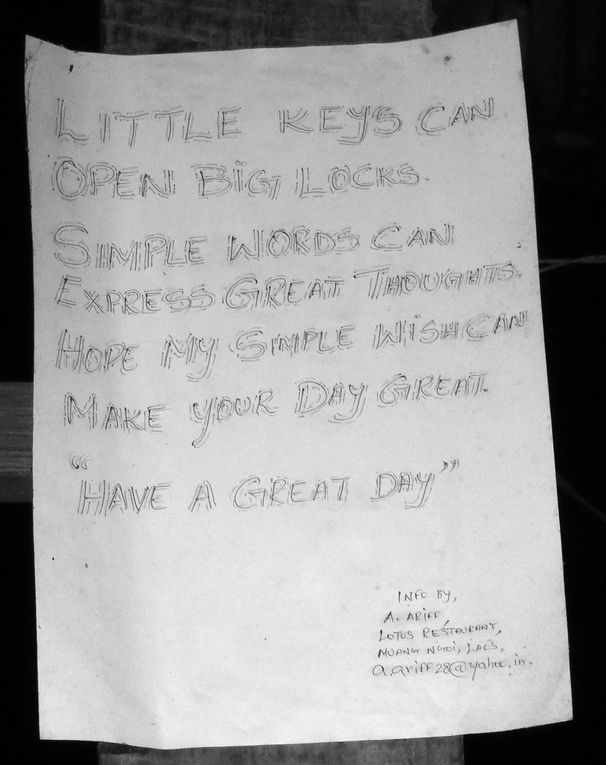 LITTLE KEYS CAN
OPEN BIG LOCKS.
SIMPLE WORDS CAN
EXPRESS GREAT THOUGHTS.
HOPE MY SIMPLE WISH CAN
MAKE YOUR DAY GREAT.
"HAVE A GREAT DAY"
INFO BY,
A. ARIFF,
LOTUS RESTAURANT,
MUANG NGOI, LAOS,
a.ariff28@yahoo.in.